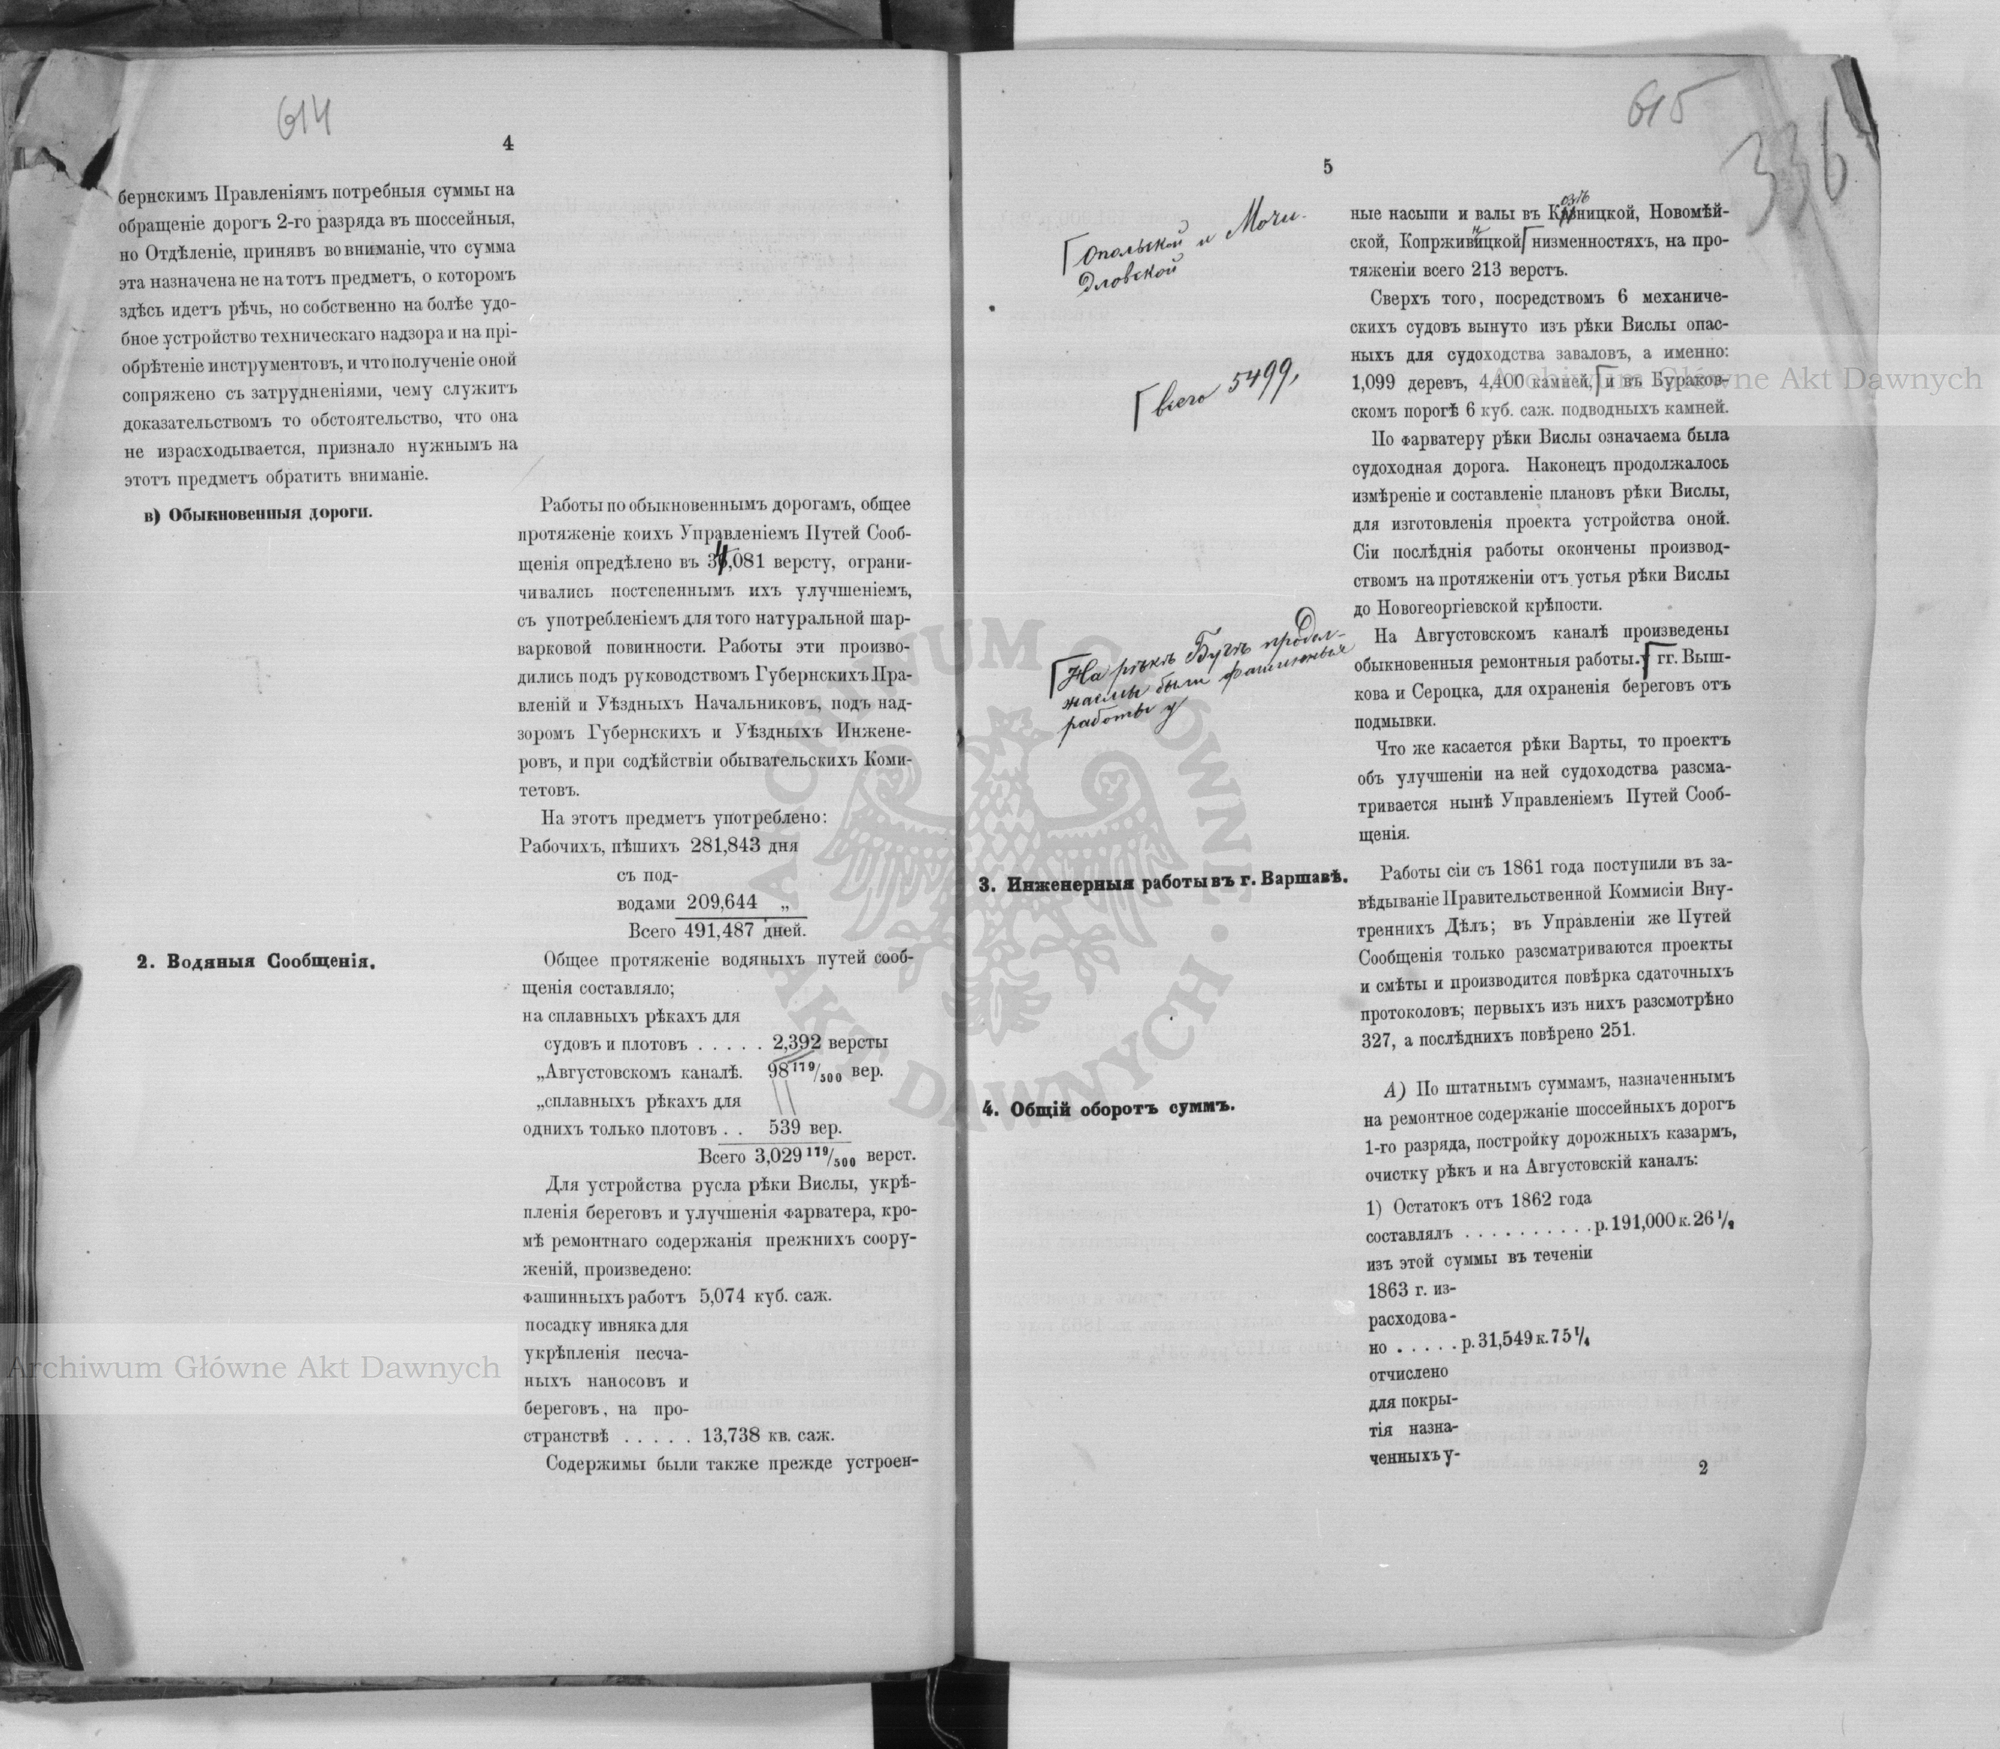 614
4
бернскимъ Правленіямъ потребныя суммы на
обращеніе дорогъ 2-го разряда въ шоссейныя,
но Отдѣленіе, принявъ во вниманіе, что сумма
эта назначена не на тотъ предметъ, о которомъ
здѣсь идетъ рѣчь, но собственно на болѣе удо-
бное устройство техническаго надзора и на прі-
обрѣтеніе инструментовъ, и что полученіе оной
сопряжено съ затрудненіями, чему служитъ
доказательствомъ то обстоятельство, что она
не израсходывается, признало нужнымъ на
этотъ предметъ обратить вниманіе.
в) Обыкновенныя дороги.
Работы по обыкновеннымъ дорогамъ, общее
протяженіе коихъ Управленіемъ Путей Сооб-
щенія опредѣлено въ 34,081 версту, ограни-
чивались постепеннымъ ихъ улучшеніемъ,
съ употребленіемъ для того натуральной шар-
варковой повинности. Работы эти произво-
дились подъ руководствомъ Губернскихъ Пра-
вленій и Уѣздныхъ Начальниковъ, подъ над-
зоромъ Губернскихъ и Уѣздныхъ Инжене-
ровъ, и при содѣйствіи обывательскихъ Коми-
тетовъ.
На этотъ предметъ употреблено:
Рабочихъ, пѣшихъ 281,843 дня
съ под-
водами 209,644 „
Всего 491,487 дней.
2. Водяныя Сообщенія.
Общее протяженіе водяныхъ путей сооб-
щенія составляло;
на сплавныхъ рѣкахъ для
судовъ и плотовъ . . . . . 2,392 версты
„Августовскомъ каналѣ. 98 179/500 вер.
„сплавныхъ рѣкахъ для
однихъ только плотовъ . . 539 вер.
Всего 3,029 179/500 верст.
Для устройства русла рѣки Вислы, укрѣ-
пленія береговъ и улучшенія фарватера, кро-
мѣ ремонтнаго содержанія прежнихъ соору-
женій, произведено:
фашинныхъ работъ 5,074 куб. саж.
посадку ивняка для
укрѣпленія песча-
ныхъ наносовъ и
береговъ, на про-
странствѣ . . . . . 13,738 кв. саж.
Содержимы были также прежде устроен-
615
336
5
ные насыпи и валы въ Козѣницкой, Новомѣй-
ской, Копрживницкой низменностяхъ, на про-
тяженіи всего 213 верстъ.
Опольской и Мочи-
дловской
Сверхъ того, посредствомъ 6 механиче-
скихъ судовъ вынуто изъ рѣки Вислы опас-
ныхъ для судоходства заваловъ, а именно:
1,099 деревъ, 4,400 камней, и въ Бураков-
скомъ порогѣ 6 куб. саж. подводныхъ камней.
всего 5499,
По фарватеру рѣки Вислы означаема была
судоходная дорога. Наконецъ продолжалось
измѣреніе и составленіе плановъ рѣки Вислы,
для изготовленія проекта устройства оной.
Сіи послѣднія работы окончены производ-
ствомъ на протяженіи отъ устья рѣки Вислы
до Новогеоргіевской крѣпости.
На Августовскомъ каналѣ произведены
обыкновенныя ремонтныя работы. гг. Выш-
кова и Сероцка, для охраненія береговъ отъ
подмывки.
На рѣкѣ Бугѣ продол-
жаемы были фашинные
работы у
Что же касается рѣки Варты, то проектъ
объ улучшеніи на ней судоходства разсма-
тривается нынѣ Управленіемъ Путей Сооб-
щенія.
3. Инженерныя работы въ г. Варшавѣ.
Работы сіи съ 1861 года поступили въ за-
вѣдываніе Правительственной Коммисіи Вну-
треннихъ Дѣлъ; въ Управленіи же Путей
Сообщенія только разсматриваются проекты
и смѣты и производится повѣрка сдаточныхъ
протоколовъ; первыхъ изъ нихъ разсмотрѣно
327, а послѣднихъ повѣрено 251.
4. Общій оборотъ суммъ.
А) По штатнымъ суммамъ, назначеннымъ
на ремонтное содержаніе шоссейныхъ дорогъ
1-го разряда, постройку дорожныхъ казармъ,
очистку рѣкъ и на Августовскій каналъ:
1) Остатокъ отъ 1862 года
составлялъ . . . . . . . . . . р. 191,000 к. 26 1/2
изъ этой суммы въ теченіи
1863 г. из-
расходова-
но . . . . . р. 31,549 к. 75 1/4
отчислено
для покры-
тія назна-
ченныхъ у-
2
Archiwum Główne Akt Dawnych
Archiwum Główne Akt Dawnych
ARCHIWUM GŁÓWNE · AKT DAWNYCH ·